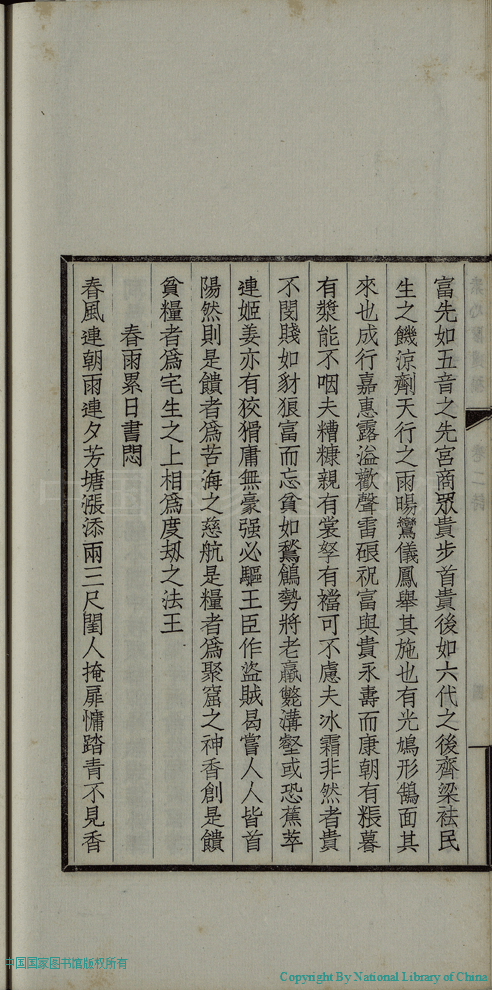 富先如五音之先宮商眾貴步首貴後如六代之後齊梁祛民
生之饑涼劑天行之雨暘鸞儀鳳舉其施也有光鳩形鵠面其
來也成行嘉惠露溢歡聲雷硠祝富與貴永壽而康朝有粻暮
有漿能不咽夫糟糠親有裳孥有襠可不慮夫冰霜非然者貴
不閔賤如豺狼富而忘貧如鶖鶬勢將老羸斃溝壑或恐蕉萃
連姬姜亦有狡猾庸無豪强必驅王臣作盜賊曷嘗人人皆首
陽然則是饋者爲苦海之慈航是糧者爲聚窟之神香創是饋
貧糧者爲宅生之上相爲度刼之法王
春雨累日書悶
春風連朝雨連夕芳塘漲添兩三尺閨人掩扉慵踏青不見香
中国国家图书馆版权所有
Copyright By National Library of China